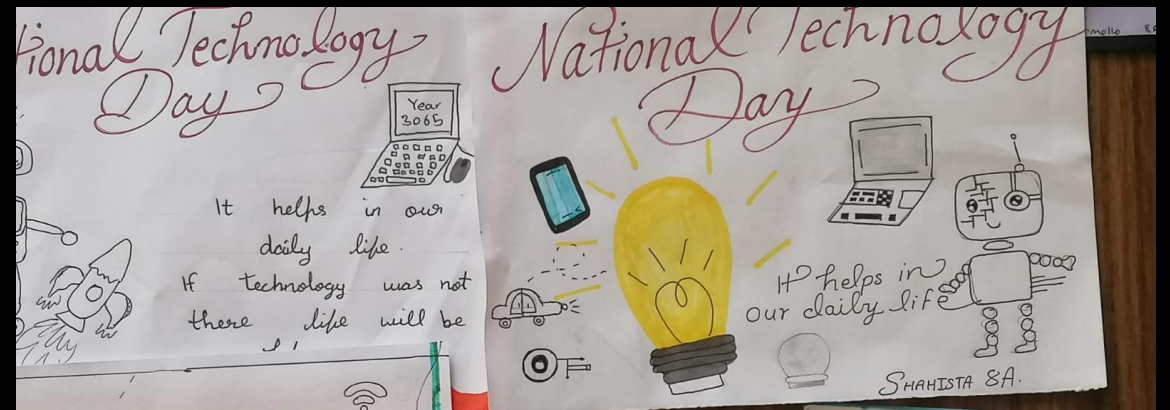 tional Technology
Day
Year
3065
It helps in our
daily life.
If technology was not
there life will be
National Technology
Day
It helps in
our daily life
SHAHISTA 8A.